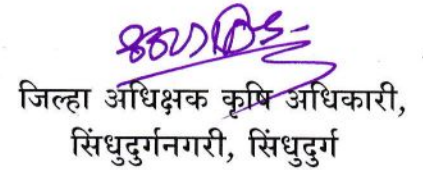 जिल्हा अधिक्षक कृषि अधिकारी,
सिंधुदुर्गनगरी, सिंधुदुर्ग